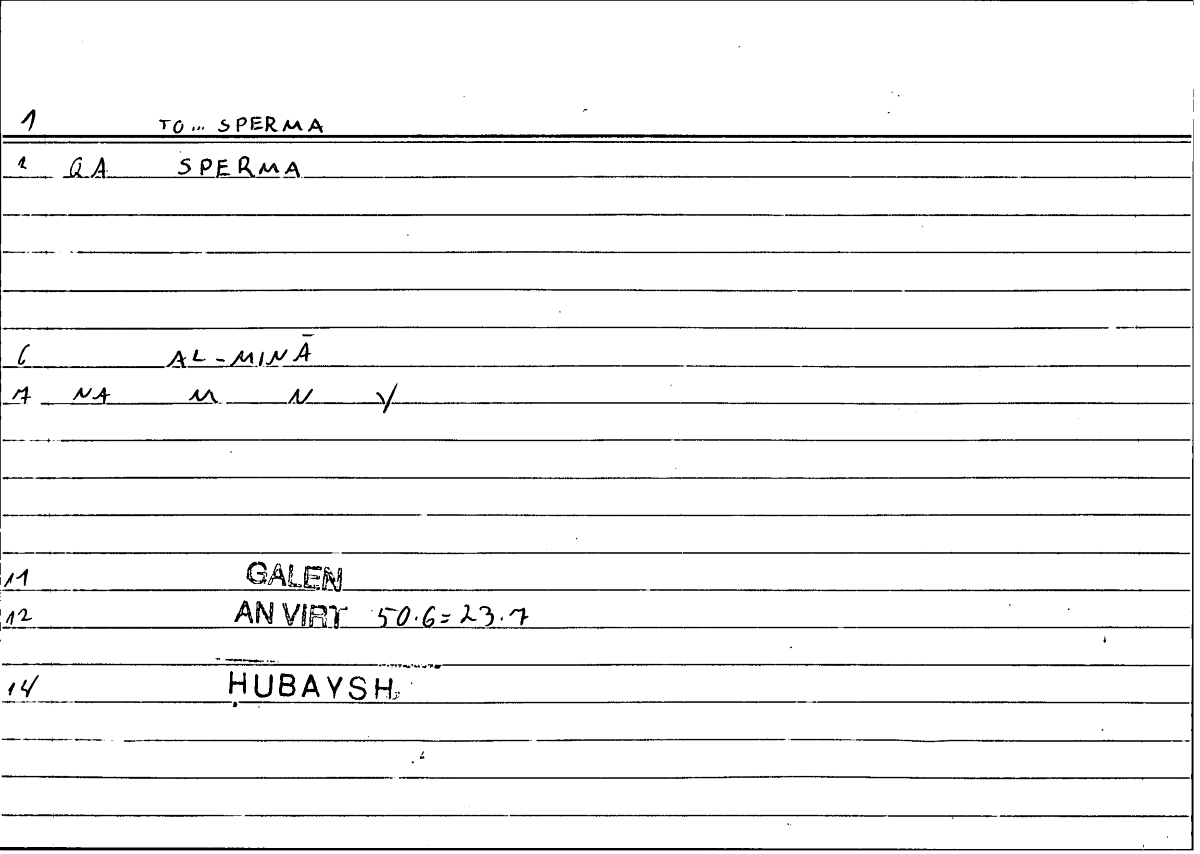 1 TO... SPERMA
2 QA SPERMA
6 AL-MINĀ
7 NA M N Y
11 GALEN
12 AN VIRT 50.6=23.7
14 ḤUBAYSH